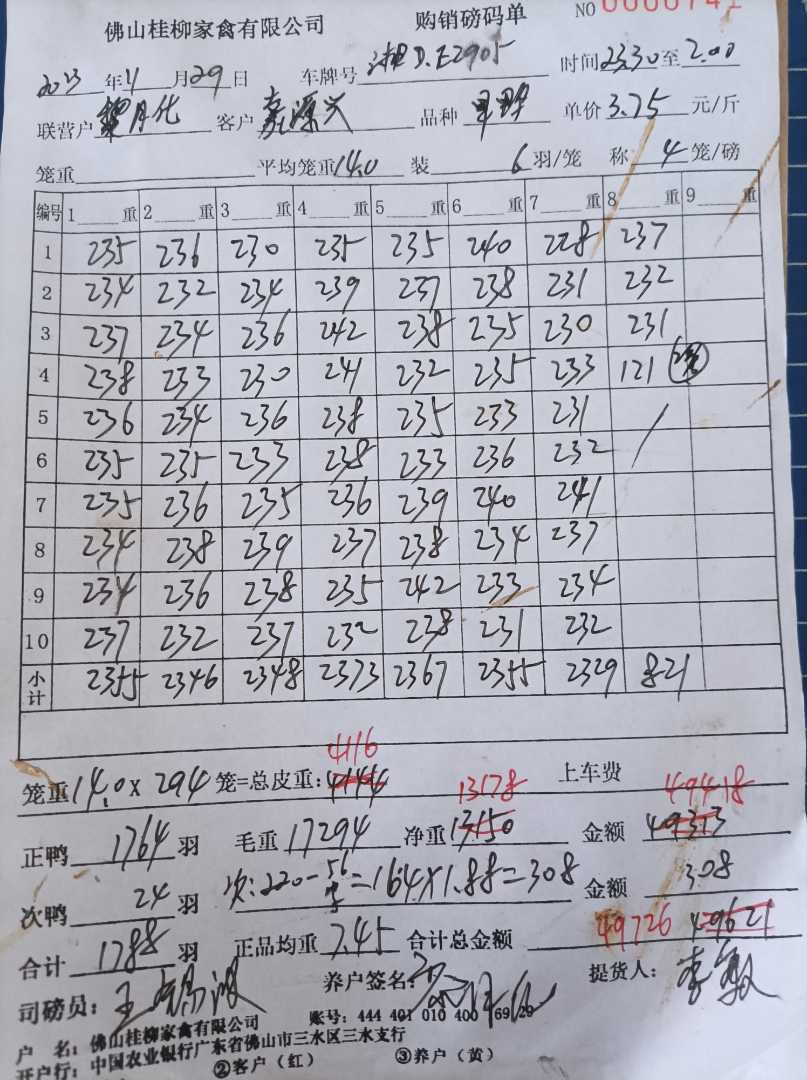 佛山桂柳家禽有限公司 购销磅码单 NO 0000741
2023年11月29日 车牌号 湘D.E2905 时间23.30至2.00
联营户 客户 嘉源兴 品种 单价3.75元/斤
笼重 平均笼重14.0 装6羽/笼 称4笼/磅
编号 1 重 2 重 3 重 4 重 5 重 6 重 7 重 8 重 9 重
1 235 236 230 235 235 240 228 237
2 234 232 234 239 237 238 231 232
3 237 234 236 242 238 235 230 231
4 238 233 230 241 232 235 233 121
5 236 234 236 238 235 233 231 /
6 235 235 233 238 233 236 232
7 235 236 235 236 239 240 241
8 234 238 239 237 238 234 237
9 234 236 238 235 242 233 234
10 237 232 237 232 238 231 232
小计 2355 2346 2348 2373 2367 2355 2329 821
4116
笼重14.0×294笼=总皮重:4144 13178 上车费 49418
正鸭1764羽 毛重17294 净重13150 金额49313
次鸭24羽 次:220-56=164×1.88=308 金额308
合计1788羽 正品均重7.45 合计总金额49726 49621
司磅员: 王 养户签名: 提货人: 李
户 名: 佛山桂柳家禽有限公司 账号: 444 401 010 400 69 29
开户行: 中国农业银行广东省佛山市三水区三水支行
②客户(红) ③养户(黄)